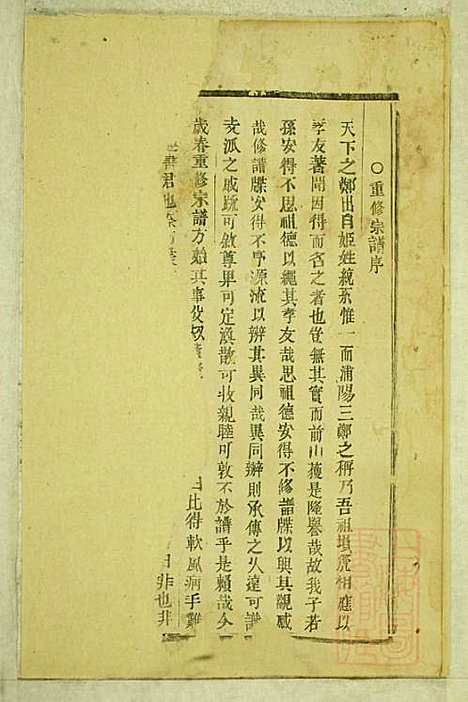 ○重修宗譜序
天下之鄭出自姬姓統系惟一而浦陽三鄭之稱乃吾祖塤箎相應以
孝友著聞因得而名之者也豈無其實而前山獲是隆譽哉故我子若
孫安得不思祖德以繩其孝友哉思祖德安得不修譜牒以興其觀感
哉修譜牒安得不序源流以辨其異同哉異同辦則承傳之久遠可識
支派之戚疏可敘尊卑可定渙散可收親睦可敦不於譜乎是賴哉今
歲春重修宗譜方始其事
比得軟風病手難
書君也
日非也非